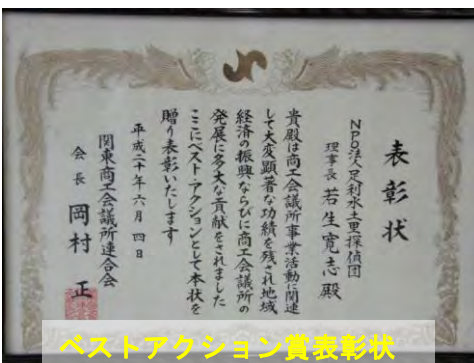 表彰状
NPO法人足利水土里探偵団
理事長 若生寛志 殿
貴殿は商工会議所事業活動に関連
して大変顕著な功績を残され地域
経済の振興ならびに商工会議所の
発展に多大な貢献をされました
ここにベスト・アクションとして本状を
贈り表彰いたします
平成二十年六月四日
関東商工会議所連合会
会長 岡村 正
ベストアクション賞表彰状